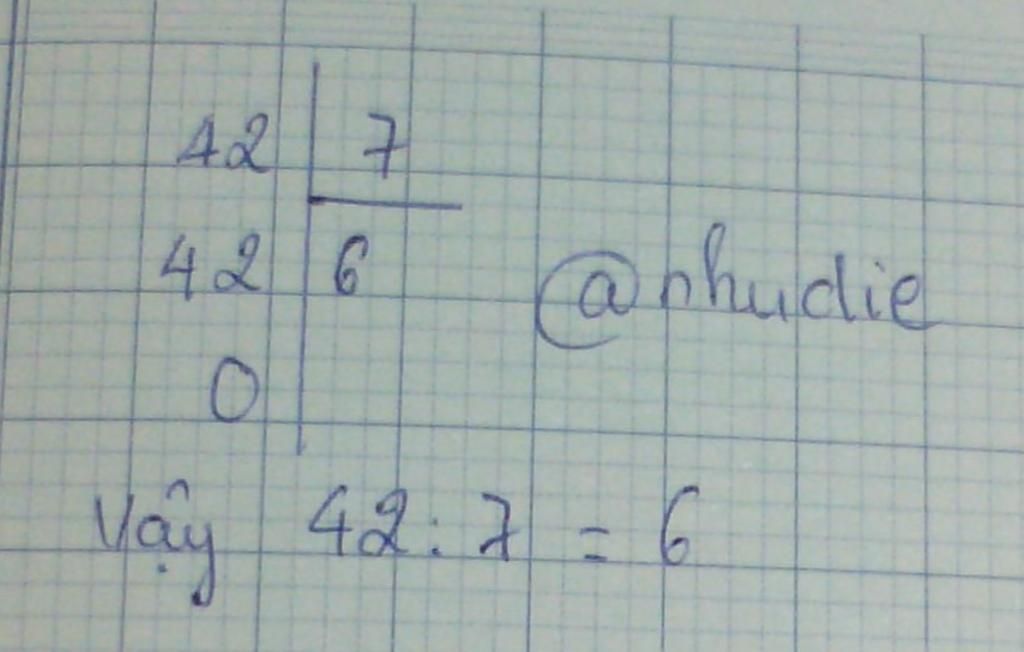 42 7
42 6 @nhudie
0
Vậy 42 : 7 = 6